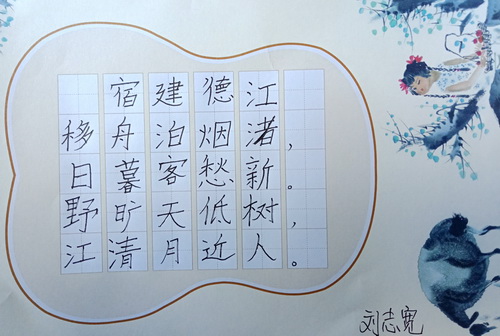 宿建德江
移舟泊烟渚，
日暮客愁新。
野旷天低树，
江清月近人。
刘志宽